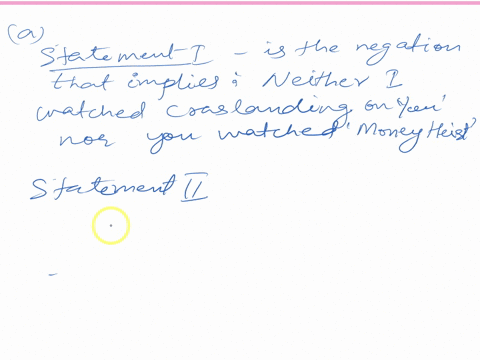 (a)
Statement I - is the negation
that implies : Neither I
watched craslanding on 'You'
nor you watched 'Money Heist'
Statement II
-